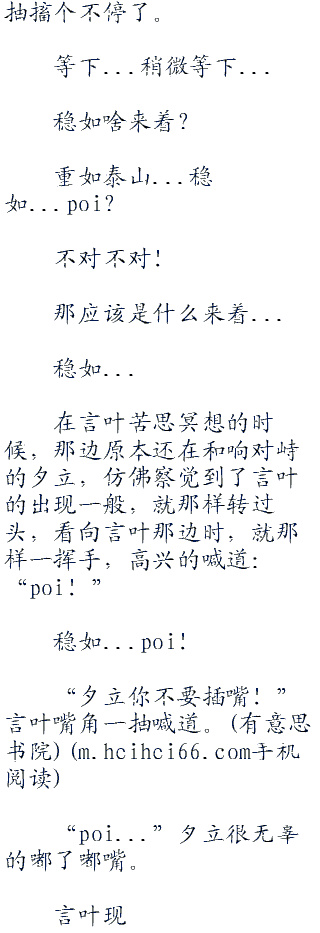 抽搐个不停了。
等下...稍微等下...
稳如啥来着？
重如泰山...稳
如...poi？
不对不对！
那应该是什么来着...
稳如...
在言叶苦思冥想的时
候，那边原本还在和响对峙
的夕立，仿佛察觉到了言叶
的出现一般，就那样转过
头，看向言叶那边时，就那
样一挥手，高兴的喊道：
“poi！”
稳如...poi！
“夕立你不要插嘴！”
言叶嘴角一抽喊道。(有意思
书院)(m.hcihci66.com手机
阅读)
“poi...”夕立很无辜
的嘟了嘟嘴。
言叶现